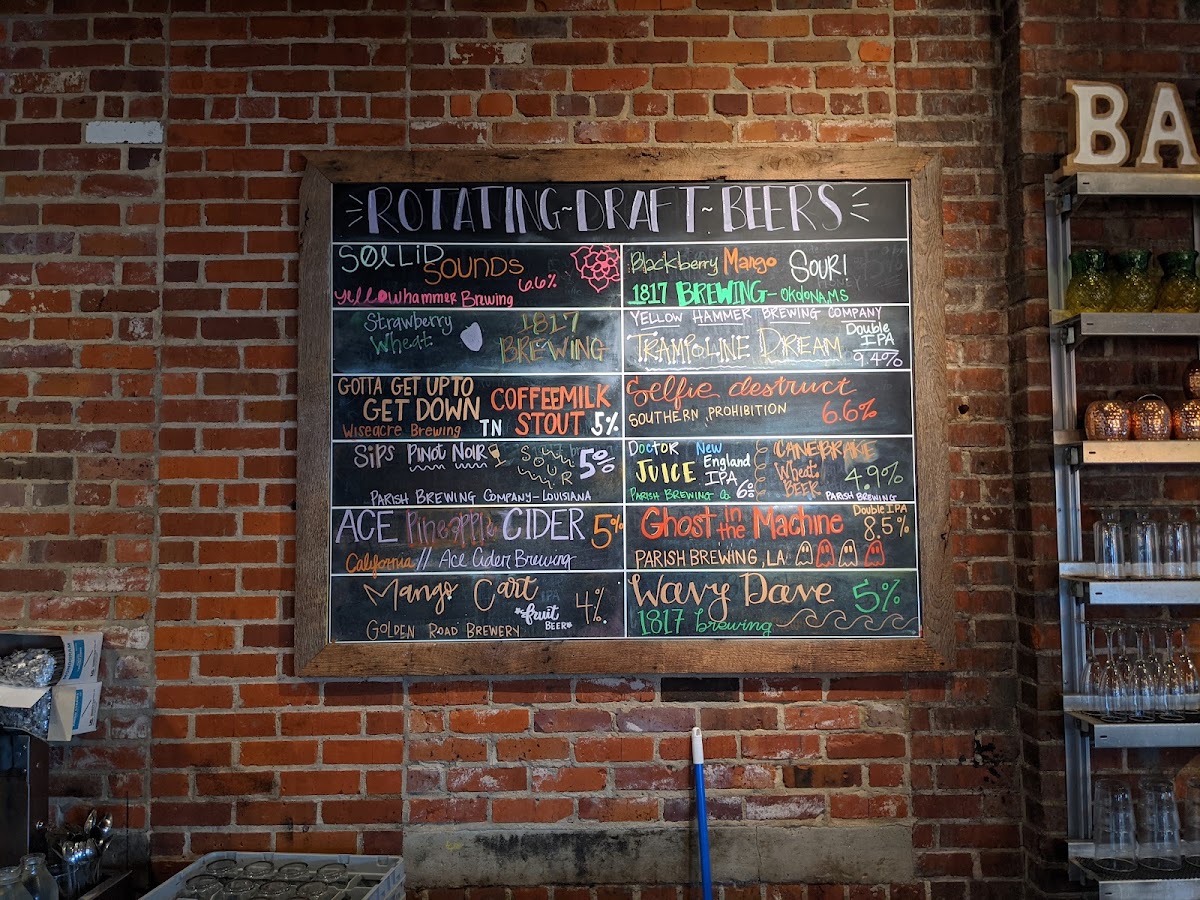 ROTATING~DRAFT~BEERS
SØLLiD
SOUNDS
6.6%
Yellowhammer Brewing
Blackberry Mango SOUR!
1817 BREWING - OKOLONA, MS
Strawberry
Wheat
1817
BREWING
YELLOW HAMMER BREWING COMPANY
TRAMPOLINE DREAM
Double
IPA
9.4%
GOTTA GET UP TO
GET DOWN
Wiseacre Brewing TN
COFFEEMILK
STOUT 5%
Selfie destruct
SOUTHERN PROHIBITION 6.6%
SiPS PiNOT NOiR SOUR 5%
PARISH BREWING COMPANY - LOUISIANA
DOCTOR
JUICE
New
England
IPA
PARISH BREWING Co 6%
CANEBRAKE
Wheat
BEER
4.9%
PARISH BREWING
ACE Pineapple CIDER 5%
California // Ace Cider Brewing
Ghost in the Machine
Double IPA
8.5%
PARISH BREWING, LA
Mango Cart
*fruit
BEER*
4%
GOLDEN ROAD BREWERY
Wavy Dave 5%
1817 brewing
BA